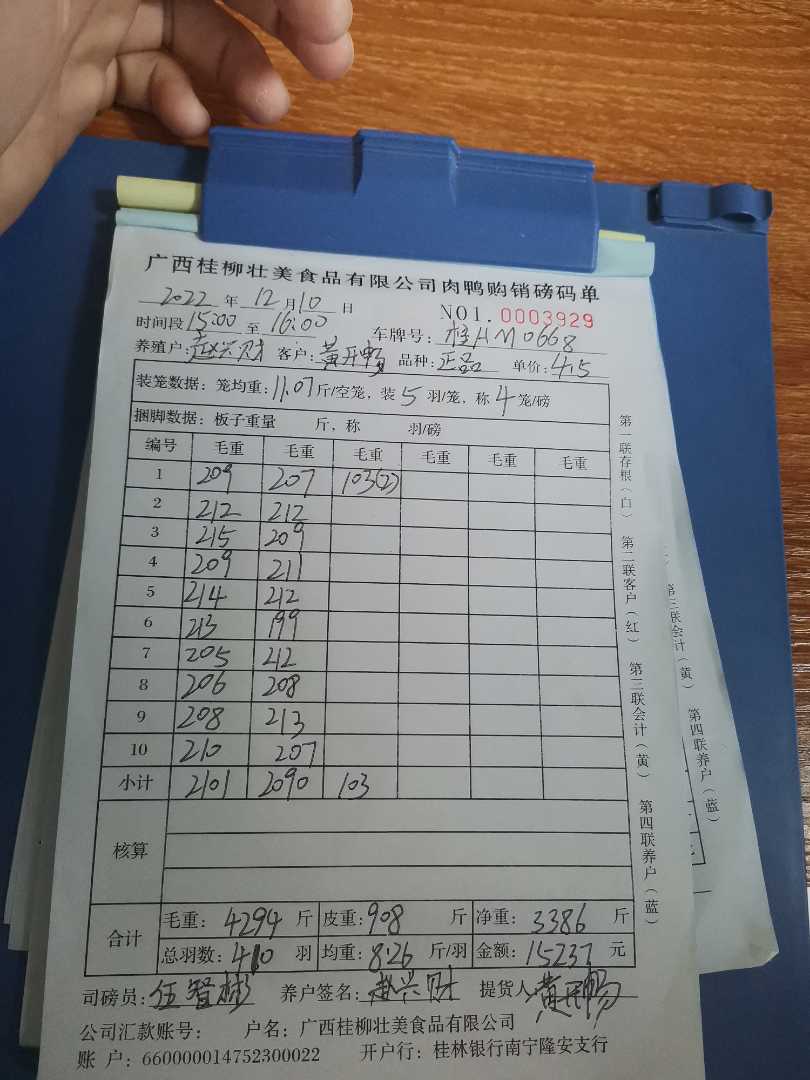 广西桂柳壮美食品有限公司肉鸭购销磅码单
2022 年 12 月 10 日 NO1. 0003929
时间段 15:00 至 16:00 车牌号: 桂HM0668
养殖户: 赵兴财 客户: 黄开畅 品种: 正品 单价: 4.5
装笼数据: 笼均重: 11.07 斤/空笼, 装 5 羽/笼, 称 4 笼/磅
捆脚数据: 板子重量 斤, 称 羽/磅
编号 毛重 毛重 毛重 毛重 毛重 毛重
1 209 207 103(2)
2 212 212
3 215 209
4 209 211
5 214 212
6 213 199
7 205 212
8 206 208
9 208 213
10 210 207
小计 2101 2090 103
核算
合计
毛重: 4294 斤 皮重: 908 斤 净重: 3386 斤
总羽数: 410 羽 均重: 8.26 斤/羽 金额: 15237 元
司磅员: 伍智彬 养户签名: 赵兴财 提货人: 黄开畅
公司汇款账号: 户名: 广西桂柳壮美食品有限公司
账 户: 660000014752300022 开户行: 桂林银行南宁隆安支行
第一联存根(白) 第二联客户(红) 第三联会计(黄) 第四联养户(蓝)
第三联会计(黄) 第四联养户(蓝)